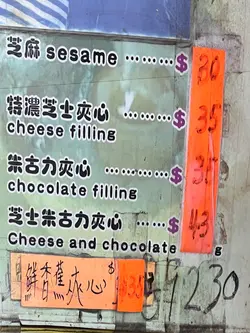 芝麻 sesame ......... $ 30
特濃芝士夾心 ...... $ 35
cheese filling
朱古力夾心 ......... $ 35
chocolate filling
芝士朱古力夾心 ...... $ 43
Cheese and chocolate
鮮香蕉夾心 $35
9230